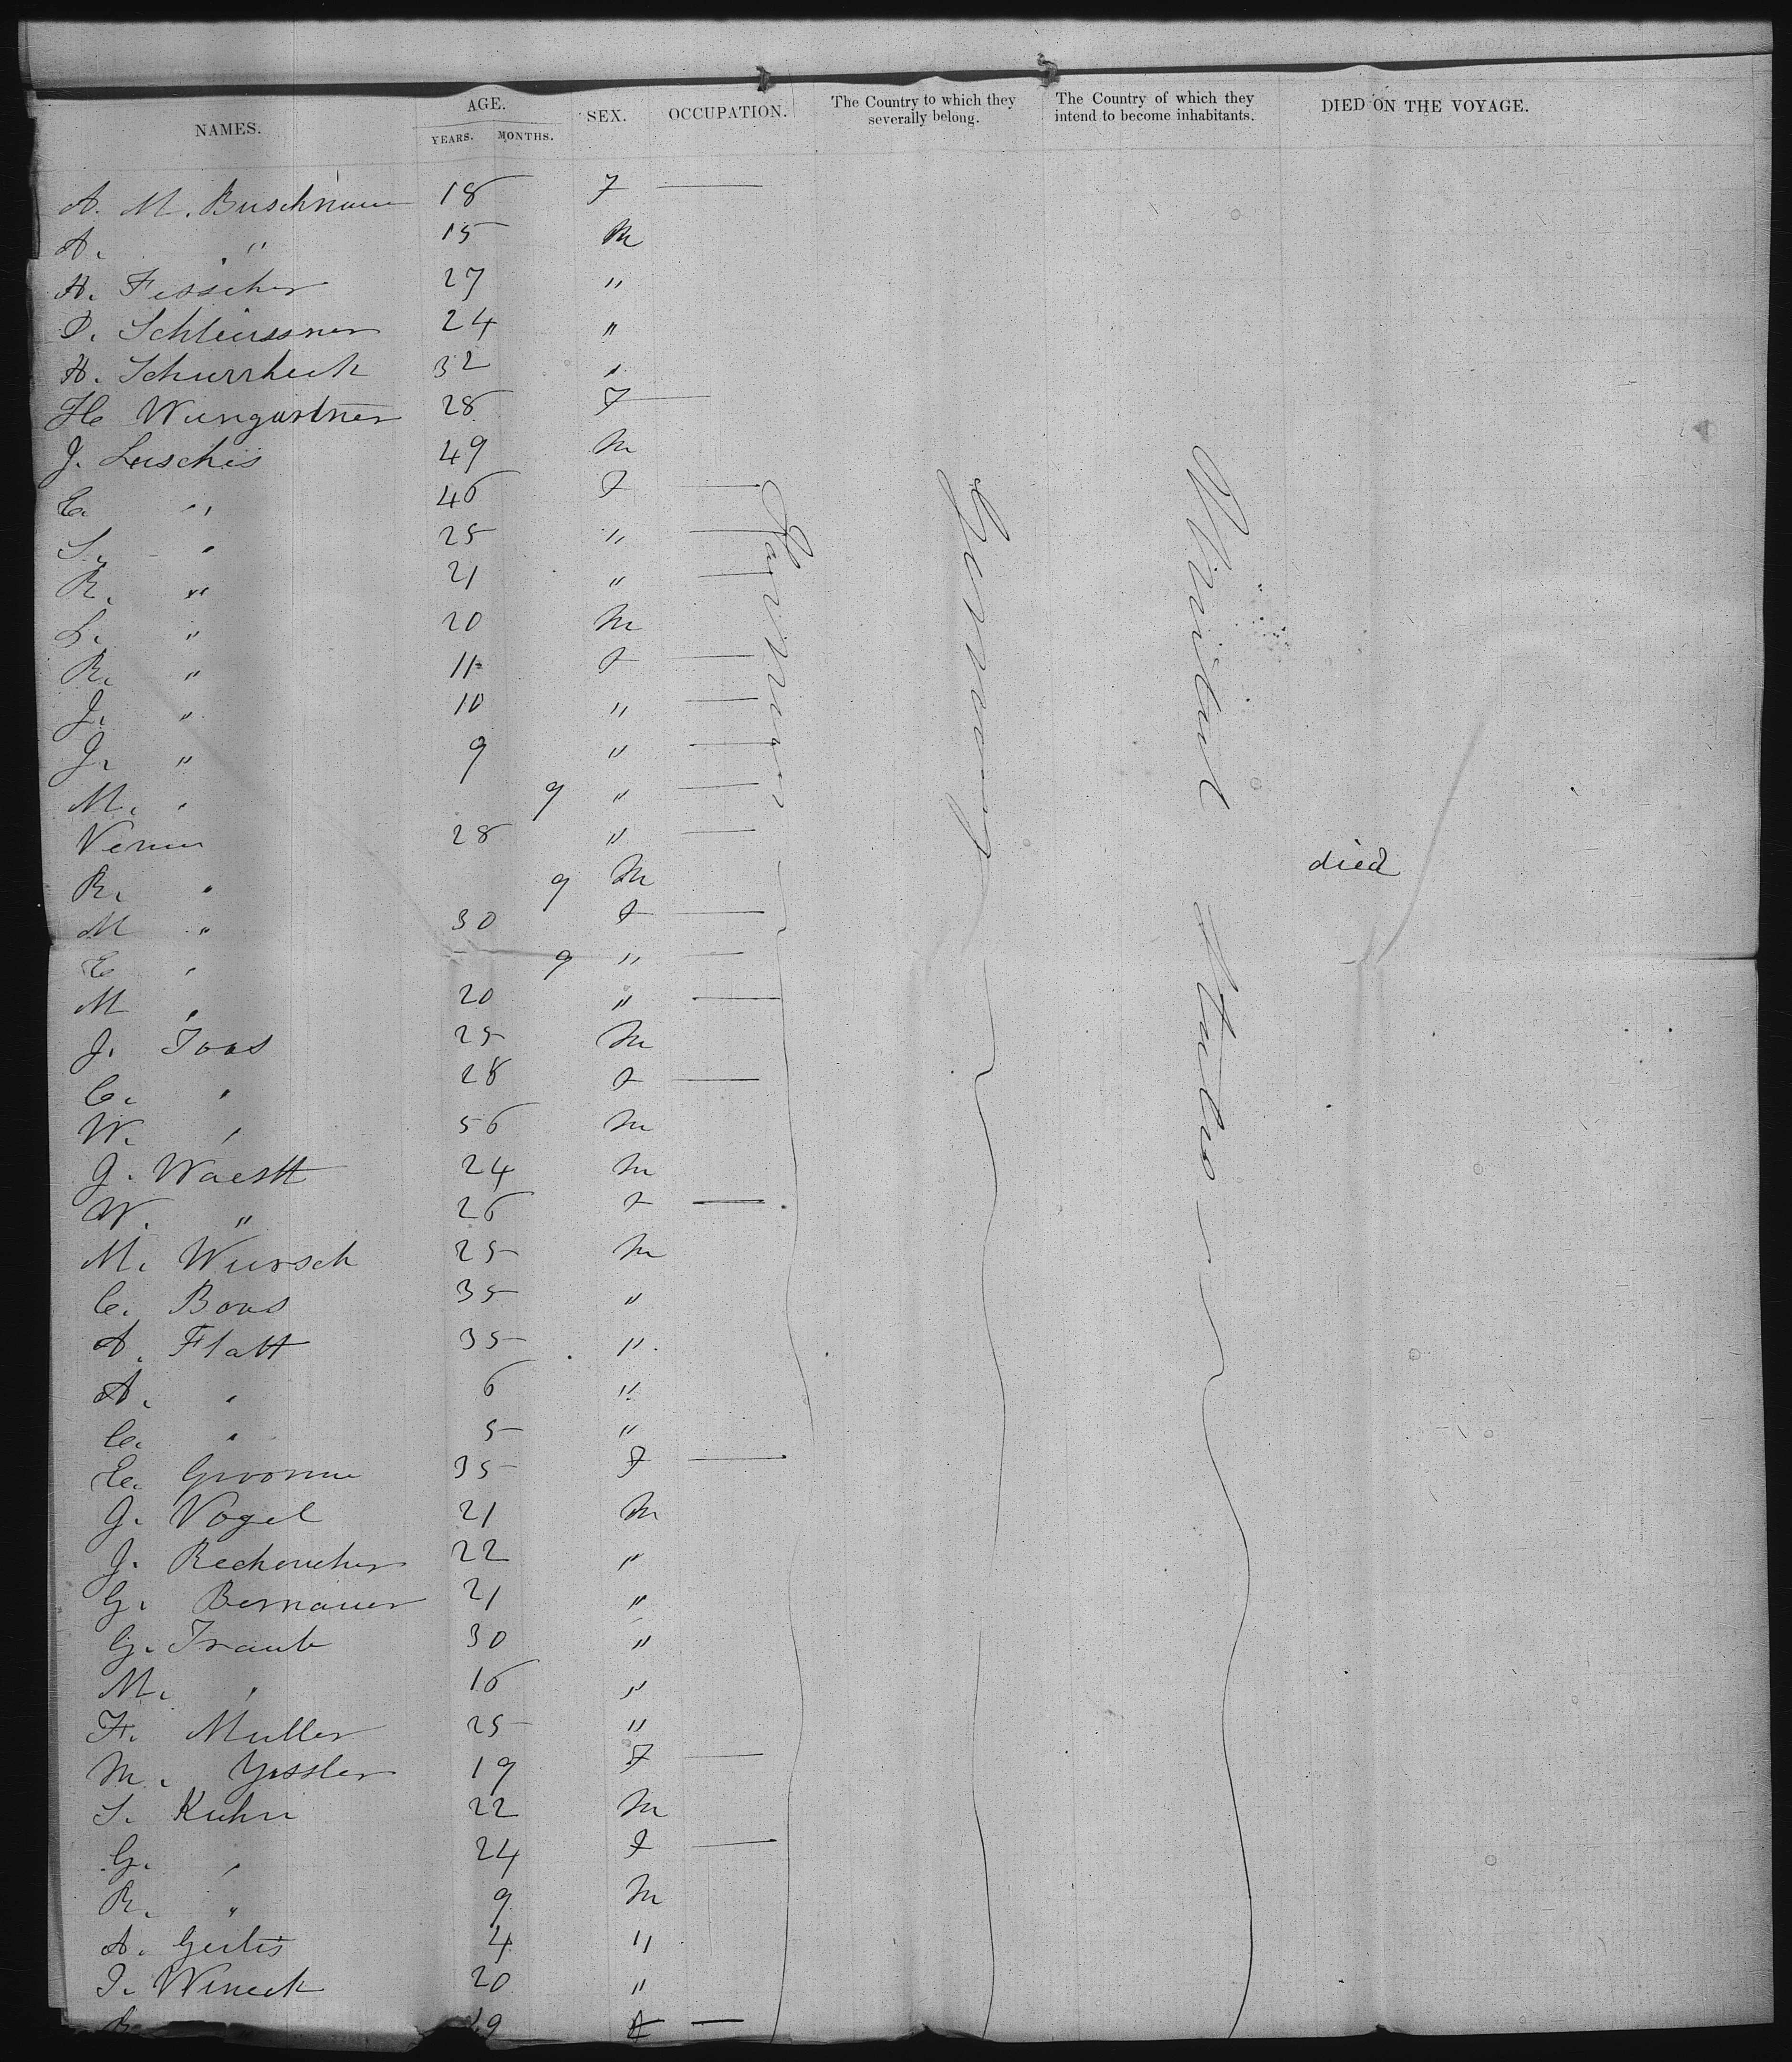 NAMES. AGE. YEARS. MONTHS. SEX. OCCUPATION. The Country to which they severally belong. The Country of which they intend to become inhabitants. DIED ON THE VOYAGE.
A. M. Buschnaur 18 F —
A. " 15 M
A. Fisscher 27 "
D. Schleussner 24 "
A. Schurrbeck 32 "
H Wungartner 28 F —
J. Luschis 49 M
E. " 46 F —
S. " 25 " —
R. " 21 " —
L. " 20 M
R. " 11 F —
J. " 10 " —
J. " 9 " —
M. " 9 " —
Verena 28 " —
R. " 9 M died
M " 30 F —
E " 9 " —
M " 20 " —
J. Joos 25 M
C. " 28 F —
W. " 56 M
J. Waestt 24 M
W. " 26 F —
M. Wursch 25 M
C. Boos 35 "
A. Flatt 35 "
A. " 6 "
C. " 5 "
E. 35 F —
J. Vogel 21 M
J. 22 "
G. Bernauer 21 "
G. Traub 30 "
M. " 16 "
F. Muller 25 "
M. Yssler 19 F —
S. Kuhn 22 M
G. " 24 F —
R. " 9 M
A. Geiles 4 "
J. Wineck 20 "
R. 49 F —
Farmer
Germany
United States